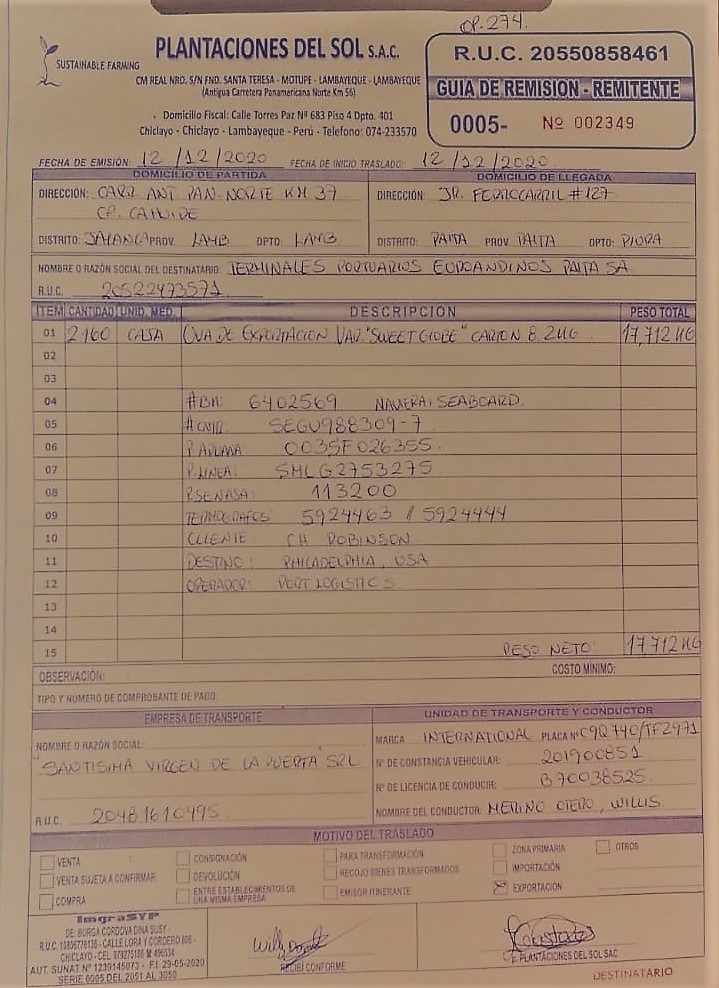 OP. 274.
SUSTAINABLE FARMING
PLANTACIONES DEL SOL S.A.C.
CM REAL NRO. S/N FND. SANTA TERESA - MOTUPE - LAMBAYEQUE - LAMBAYEQUE
(Antigua Carretera Panamericana Norte Km 56)
. Domicilio Fiscal: Calle Torres Paz Nº 683 Piso 4 Dpto. 401
Chiclayo - Chiclayo - Lambayeque - Perú - Telefono: 074-233570
R.U.C. 20550858461
GUIA DE REMISION - REMITENTE
0005- Nº 002349
FECHA DE EMISIÓN: 12 / 12 / 2020 FECHA DE INICIO TRASLADO: 12 / 12 / 2020
DOMICILIO DE PARTIDA DOMICILIO DE LLEGADA
DIRECCIÓN: CARR. ANT. PAN. NORTE KM 37 DIRECCIÓN: JR. FERROCARRIL #127
CP.
DISTRITO: JAYANCA PROV. LAMB DPTO: LAMB DISTRITO: PAITA PROV. PAITA DPTO: PIURA
NOMBRE O RAZÓN SOCIAL DEL DESTINATARIO: TERMINALES PORTUARIOS EUROANDINOS PAITA SA
R.U.C. 20522473571
ITEM CANTIDAD UNID. MED. DESCRIPCION PESO TOTAL
01 2160 CAJA UVA DE EXPORTACION VAR. "SWEET GLOBE" CARTON 8.2KG. 17,712 KG
02
03
04 #BK: 6402569 NAVIERA: SEABOARD.
05 #CNTR: SEGU988309-7
06 P. ADUANA: 0035F026355.
07 P. LINEA: SMLG2753275
08 P. SENASA: 113200
09 TERMOGRAFOS: 5924463 / 5924444
10 CLIENTE: CH ROBINSON
11 DESTINO: PHILADELPHIA, USA
12 OPERADOR: PORT LOGISTICS
13
14
15 PESO NETO: 17,712 KG
OBSERVACIÓN: COSTO MÍNIMO:
TIPO Y NUMERO DE COMPROBANTE DE PAGO:
EMPRESA DE TRANSPORTE UNIDAD DE TRANSPORTE Y CONDUCTOR
NOMBRE O RAZÓN SOCIAL:
"SANTISIMA VIRGEN DE LA PUERTA" SRL
R.U.C. 20481610495
MARCA INTERNATIONAL PLACA Nº C9Q740/TFZ971
Nº DE CONSTANCIA VEHICULAR: 201900851
Nº DE LICENCIA DE CONDUCIR: B70038525
NOMBRE DEL CONDUCTOR: MERINO OTERO, WILLIS.
MOTIVO DEL TRASLADO
VENTA CONSIGNACIÓN PARA TRANSFORMACIÓN ZONA PRIMARIA OTROS
VENTA SUJETA A CONFIRMAR DEVOLUCIÓN RECOJO BIENES TRANSFORMADOS IMPORTACIÓN
COMPRA ENTRE ESTABLECIMIENTOS DE UNA MISMA EMPRESA EMISOR ITINERANTE EXPORTACIÓN
ImgraSYP
DE: BURGA CORDOVA DINA SUSY -
CALLE LORA Y CORDERO 806 -
AUT. SUNAT Nº 1239145073 - F.I. 29-05-2020
SERIE 0005 DEL 2051 AL 3050
RECIBI CONFORME
P. PLANTACIONES DEL SOL SAC
DESTINATARIO